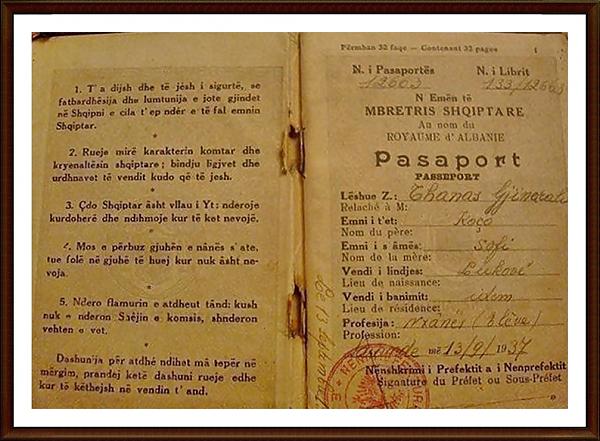 1. T'a dijsh dhe të jesh i sigurtë, se
fatbardhësija dhe lumtunija e jote gjindet
në Shqipni e cila t'ep ndér e të fal emnin
Shqiptar.
2. Rueje mirë karakterin komtar dhe
kryenaltësin shqiptare; bindju ligjvet dhe
urdhnavet të vendit kudo që të jesh.
3. Çdo Shqiptar âsht vllau i Yt: nderoje
kurdoherë dhe ndihmoje kur të ket nevojë.
4. Mos e përbuz gjuhën e nânës s'ate,
tue folë në gjuhë të huej kur nuk âsht ne-
voja.
5. Ndero flamurin e atdheut tând: kush
nuk e nderon Shêjin e komsis, shnderon
vehten e vet.
Dashunja për atdhé ndihet mâ tepër në
mërgim, prandej ketë dashuni rueje edhe
kur të kéthejsh në vendin t'and.
Përmban 32 faqe — Contenant 32 pages
1
N. i Pasaportës
N. i Librit
12603
133/12603
N Emën të
MBRETRIS SHQIPTARE
Au nom du
ROYAUME d'ALBANIE
Pasaport
PASSEPORT
Lëshue Z.: Thanas Gjinarali
Relaché à M:
Emni i t'et: Koço
Nom du père:
Emni i s âmës: Sofi
Nom de la mère:
Vendi i lindjes: Lukovë
Lieu de naissance:
Vendi i banimit: idem
Lieu de résidence:
Profesija: nxânës (Elève)
Profession:
më 13/9/1937
Nënshkrimi i Prefektit a i Nenprefektit
Signature du Préfet ou Sous-Préfet